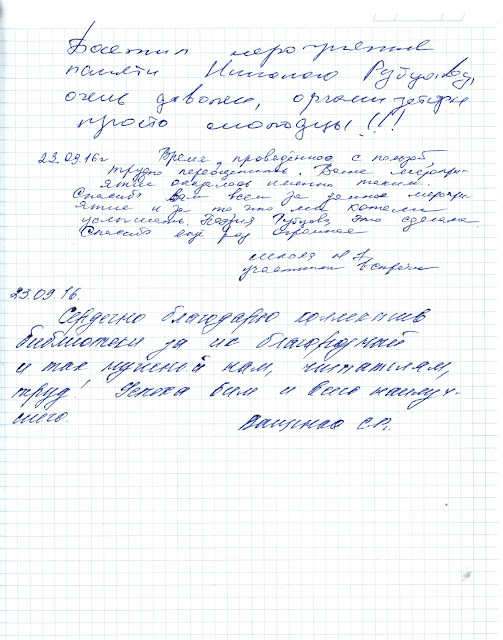 Посетил мероприятие
памяти Николаю Рубцову,
очень доволен, организаторы
просто молодцы!!!
23.09.16г Время, проведённое с пользой,
трудно переоценить. Ваше меропри-
ятие оказалось именно таким.
Спасибо Вам всем за данное меропри-
ятие и за то что мы
услышать. Поэзия Рубцова это сделала.
Спасибо ещё раз огромное
школа №
участники встречи
23.09.16.
Сердечно благодарю коллектив
библиотеки за их благородный
и так нужный нам, читателям,
труд! Успеха Вам и всего наилуч-
шего.
С.В.